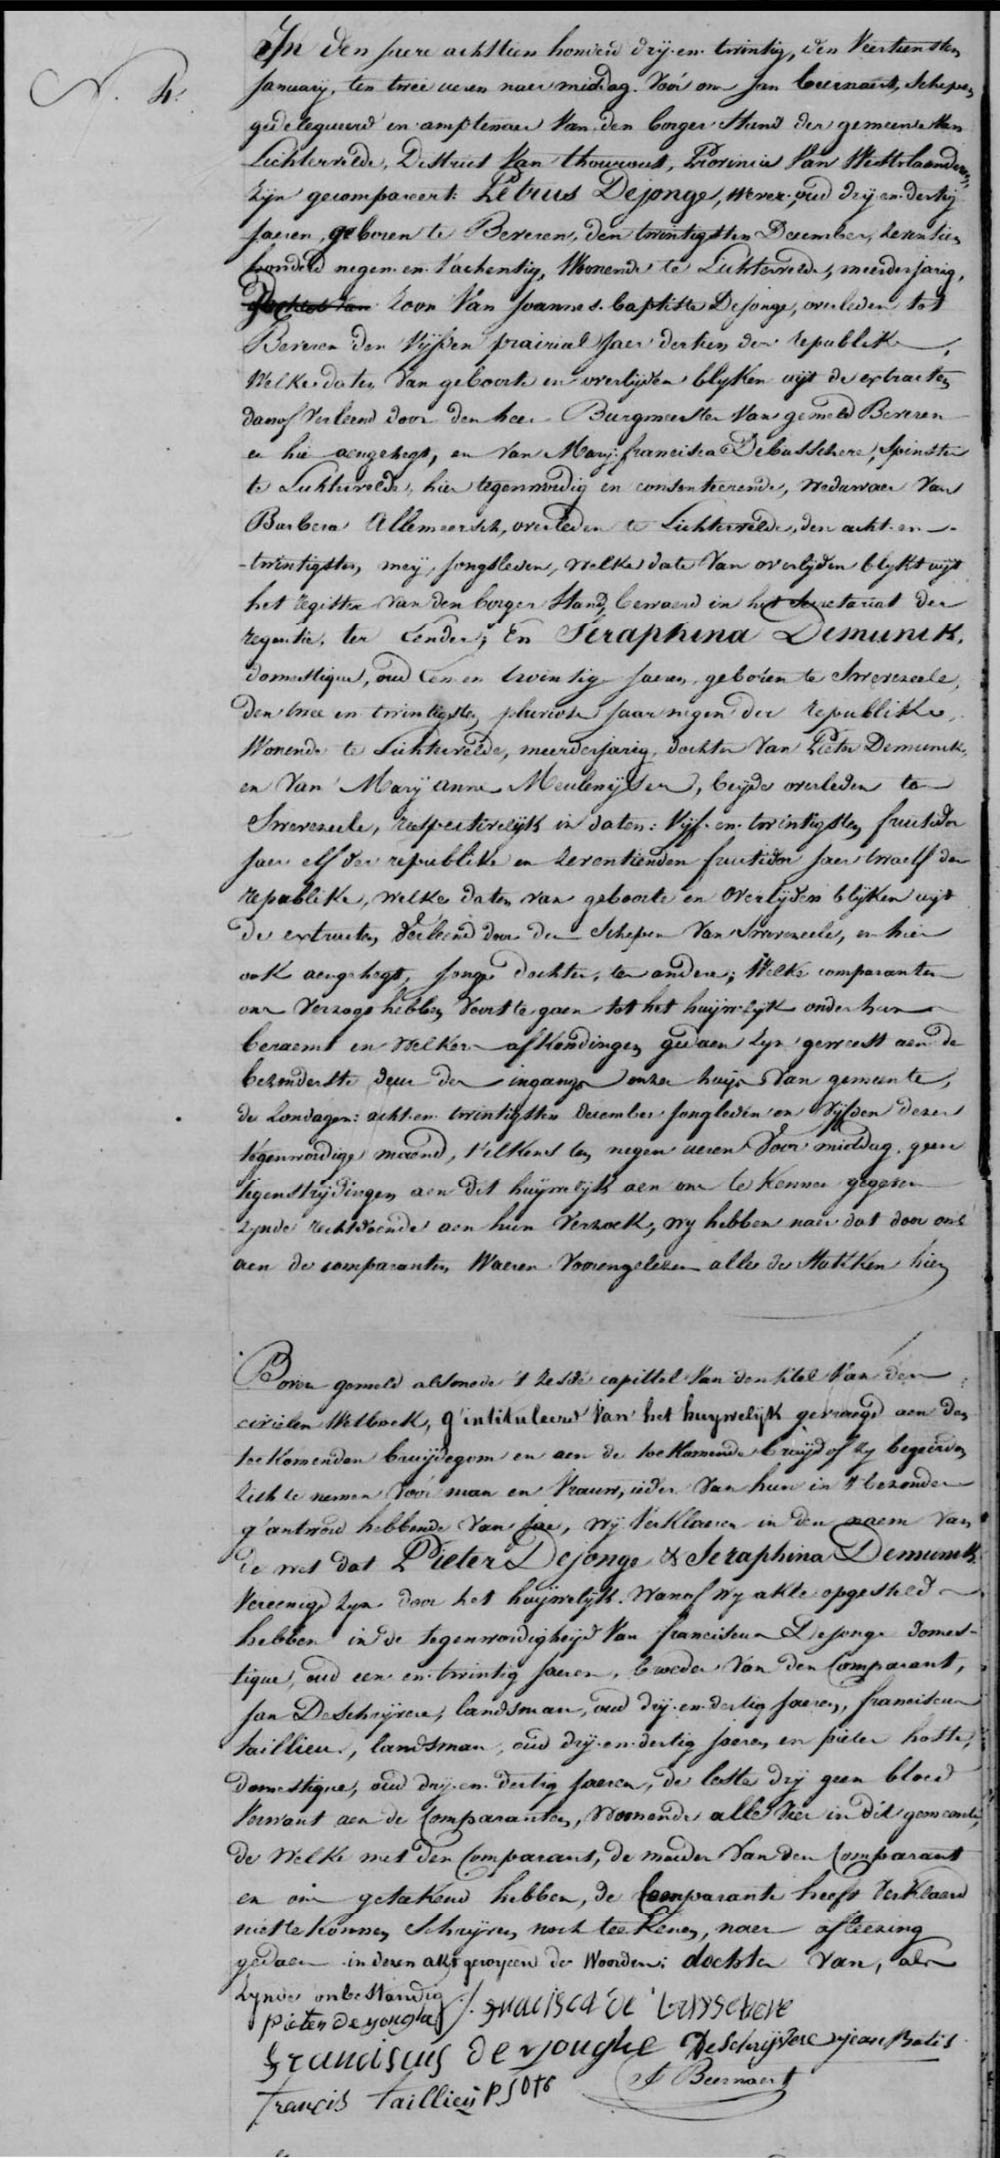 N. 4.
In den jaere achttien honderd dry-en-twintig, den veertiensten
January, ten twee ueren naer middag. Voór ons Jan Beernaert, Schepen
gedelegueerd en amptenaer Van den borger Stand der gemeente Van
Lichtervelde, District Van Thourout, Provincie Van Westvlaenderen,
zijn gecompareert: Petrus Dejonge, wever, oud dry-en-dertig
jaeren, geboren te Beveren, den twintigsten December, zeventien
honderd negen-en-tachentig, Wonende te Lichtervelde, meerderjarig,
dochter van zoon Van Joannes-Baptiste Dejonge, overleden tot
Beveren den Vijfden prairial Jaer derthien der republiek,
Welke daten Van geboorte en overlijden blyken uijt de extracten
danof Verleend door den heer Burgmeester Van gemeld Beveren
en hier aengehegt, en Van Marij-francisca Debusschere, Spinster
te Lichtervelde, hier tegenwoordig en consenteerende, Weduwaer Van
Barbera Allemeersch, overleden te Lichtervelde, den acht-en-
-twintigsten, meij, Jongsleden, welke date Van overlyden blykt uijt
het register Van den borger Stand, bewaerd in het Secretariat der
regentie, ter Eender; En Seraphina Demunck,
domestique, oud een en twintig Jaeren, geboren te Swevezeele,
den twee en twintigsten pluviose Jaar negen der republieke,
Wonende te Lichtervelde, meerderjarig, dochter Van Pieter Demunck,
en Van Marij anne Meulemijster, beijde overleden te
Swevezeele, respectivelijk in daten: Vijf-en-twintigsten fructidor
Jaer elf der republike en zeventienden fructidor Jaer twaelf der
republike, welke daten van geboorte en overlijden blijken uijt
de extracten, Verleend door den Schepen Van Swevezeele, en hier
ook aengehegt, Jonge dochter, ter andere; Welke comparanten
ons Verzogt hebben Voort te gaen tot het huijwelijk onder hun
beraemt en Welkers afkondingen gedaen zyn geweest aen de
bezonderste deur der ingangs onzer huijs Van gemeente,
de zondagen: acht en twintigsten december Jongleden en Vijfden dezer
tegenwoordige maend, t'elkens ten negen ueren Voor middag, geene
tegenstrijdingen aen dit huijwelijk aen ons te kennen gegeven
zynde rechtdoende aen hun Verzoek, wy hebben naer dat door ons
aen de comparanten, Waeren Voorengelezen alle de stukken hier
Boven gemeld alsmede 't zesde capittel Van den titel Van den
civielen Wetboek, g'intituleerd Van het huywelijk gevraegd aen den
toekomenden bruijdegom en aen de toekomende bruijd of zy begeirden
zich te nemen Voór man en Vrauw, ieder Van hun in 't bezonder
g'antword hebbende Van jae, wij Verklaeren in den naem Van
de wet dat Pieter Dejonge & Seraphina Demunck
Vereenigd zyn door het huijwelijk. Wanof wy akte opgesteld
hebben in de tegenwoordigheijd Van franciscus Dejonge domes-
tique, oud een-en-twintig Jaeren, broeder Van den Comparant,
Jan Deschrijvere, landsman, oud drij-en-dertig Jaeren, franciscus
taillieu, landsman, oud drij-en-dertig Jaeren, en pieter hoste,
domestique, oud drij-en-dertig Jaeren, de leste drij geen bloed
Verwant aen de Comparanten, Woonende alle Vier in dit gemeente,
de Welke met den Comparant, de moeder Van den Comparant
en ons geteekend hebben, de Comparante heeft Verklaerd
niet te konnen Schrijven noch teekenen, naer aflezing
gedaen in dezen akt geroyeerd de Woorden: dochter van, als
zijnde onbestandig
pieter de jonghe francisca de busschere
Franciscus de jonghe Deschrijvere jean Batis
Francis taillieu P S Ote J Beernaert